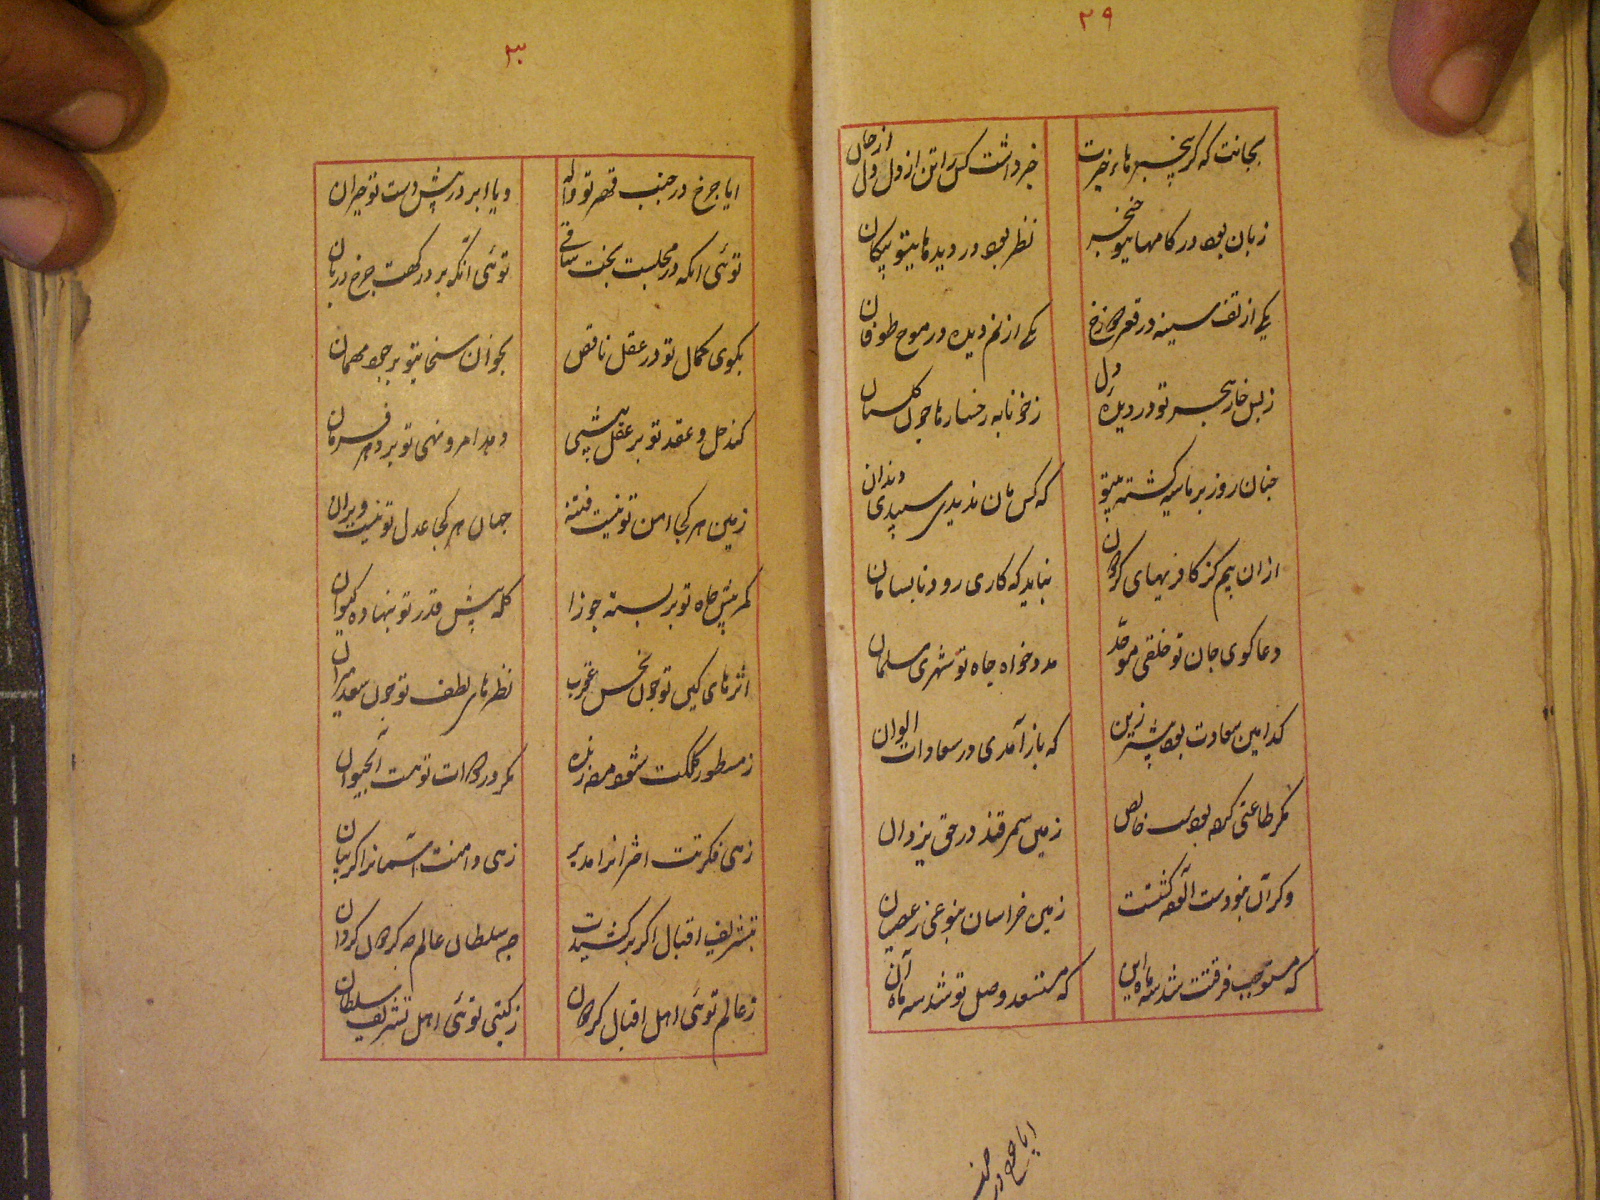 ۲۹
بجانت که گر بیخبر ماند خبرت
خبر داشت کس را تن از دل دل از جان
زبان بود در کامها بیتو خنجر
نظر بود در دیدها بیتو پیکان
یکی از تف سینه در قعر دوزخ
یکی از نم دیده در موج طوفان
ز بس خار هجر تو در دیده و دل
ز خونابه رخسارها چون گلستان
چنان روز بر ما سیه گشته بیتو
که کس مان ندیدی سپیدی دندان
ازان بیم کز کافریهای گردون
نباید که کاری رود نابسامان
دعا گوی جان تو خلقی موحد
مدد خواه جاه تو شهری مسلمان
کدامین سعادت بود بیشتر زین
که باز آمدی در سعادات الوان
مگر طاعتی کرده بودست خالص
زمین سمرقند در حق یزدان
وگر آن نبودست آلوده گشتست
زمین خراسان بنوعی ز عصیان
که مستوجب فرقتت شد سه ماه این
که مستسعد وصل تو شد سه ماه آن
ایا چرخ در جنب
۳۰
ایا چرخ در جنب قهر تو واله
ویا ابر در پیش دست تو حیران
توئی آنکه در مجلست بخت ساقی
توئی آنکه بر درگهت چرخ دربان
بکوی کمال تو در عقل ناقص
بخوان سخا بتو بر جود مهمان
کند حل و عقد تو بر عقل پیشی
دهد امر و نهی تو بر دهر فرمان
زمین هر کجا امن تو نیست فتنه
جهان هر کجا عدل تو نیست ویران
کمر پیش جاه تو بر بسته جوزا
کله پیش قدر تو بنهاده کیوان
اثرهای کین تو چون نحس عقرب
نظرهای لطف تو چون سعد میزان
ز مسطور کلکت شود مرده زنده
مگر در دوات تو هست آبحیوان
زهی فکرتت اخترانرا مدبر
زهی دامنت آسمانرا گریبان
بتشریف اقبال اگر بر کشیدت
چه سلطان عالم چه گردون گردان
ز عالم توئی اهل اقبال گردون
ز گیتی توئی اهل تشریف سلطان